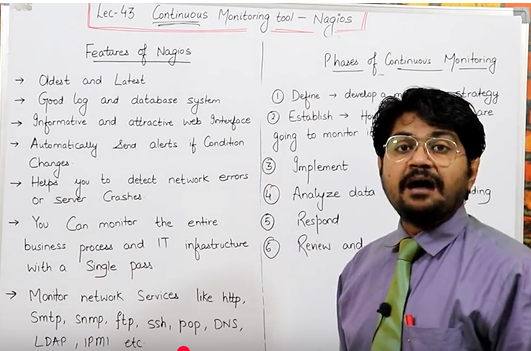 Lec-43 Continuous Monitoring tool - Nagios
Features of Nagios
→ Oldest and Latest
→ Good log and database system
→ Informative and attractive web Interface
→ Automatically send alerts if Condition
Changes
→ Helps you to detect network errors
or server Crashes
→ You Can monitor the entire
business process and IT infrastructure
with a Single pass
→ Monitor network Services like http,
Smtp, snmp, ftp, ssh, pop, DNS,
LDAP, IPMI etc
Phases of Continuous Monitoring
① Define → develop a strategy
② Establish → are
going to monitor
③ Implement
④ Analyze data
⑤ Respond
⑥ Review and